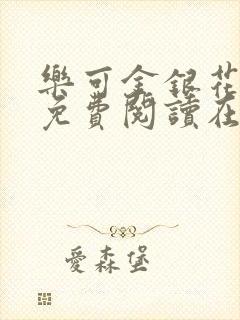 樂可金銀花
免費閱讀在
愛森堡